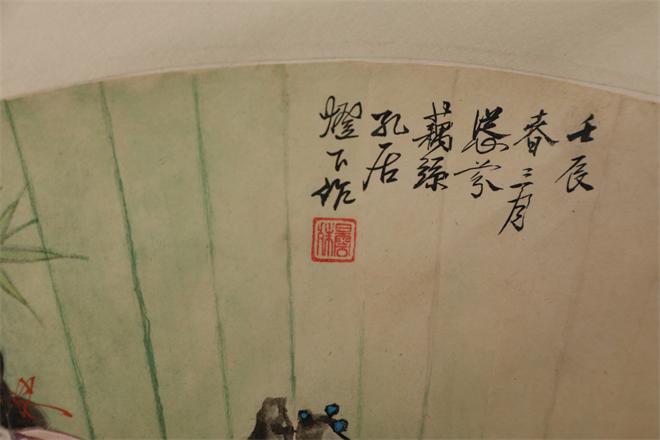 壬辰
春三月
藕絲
孔居
燈下作